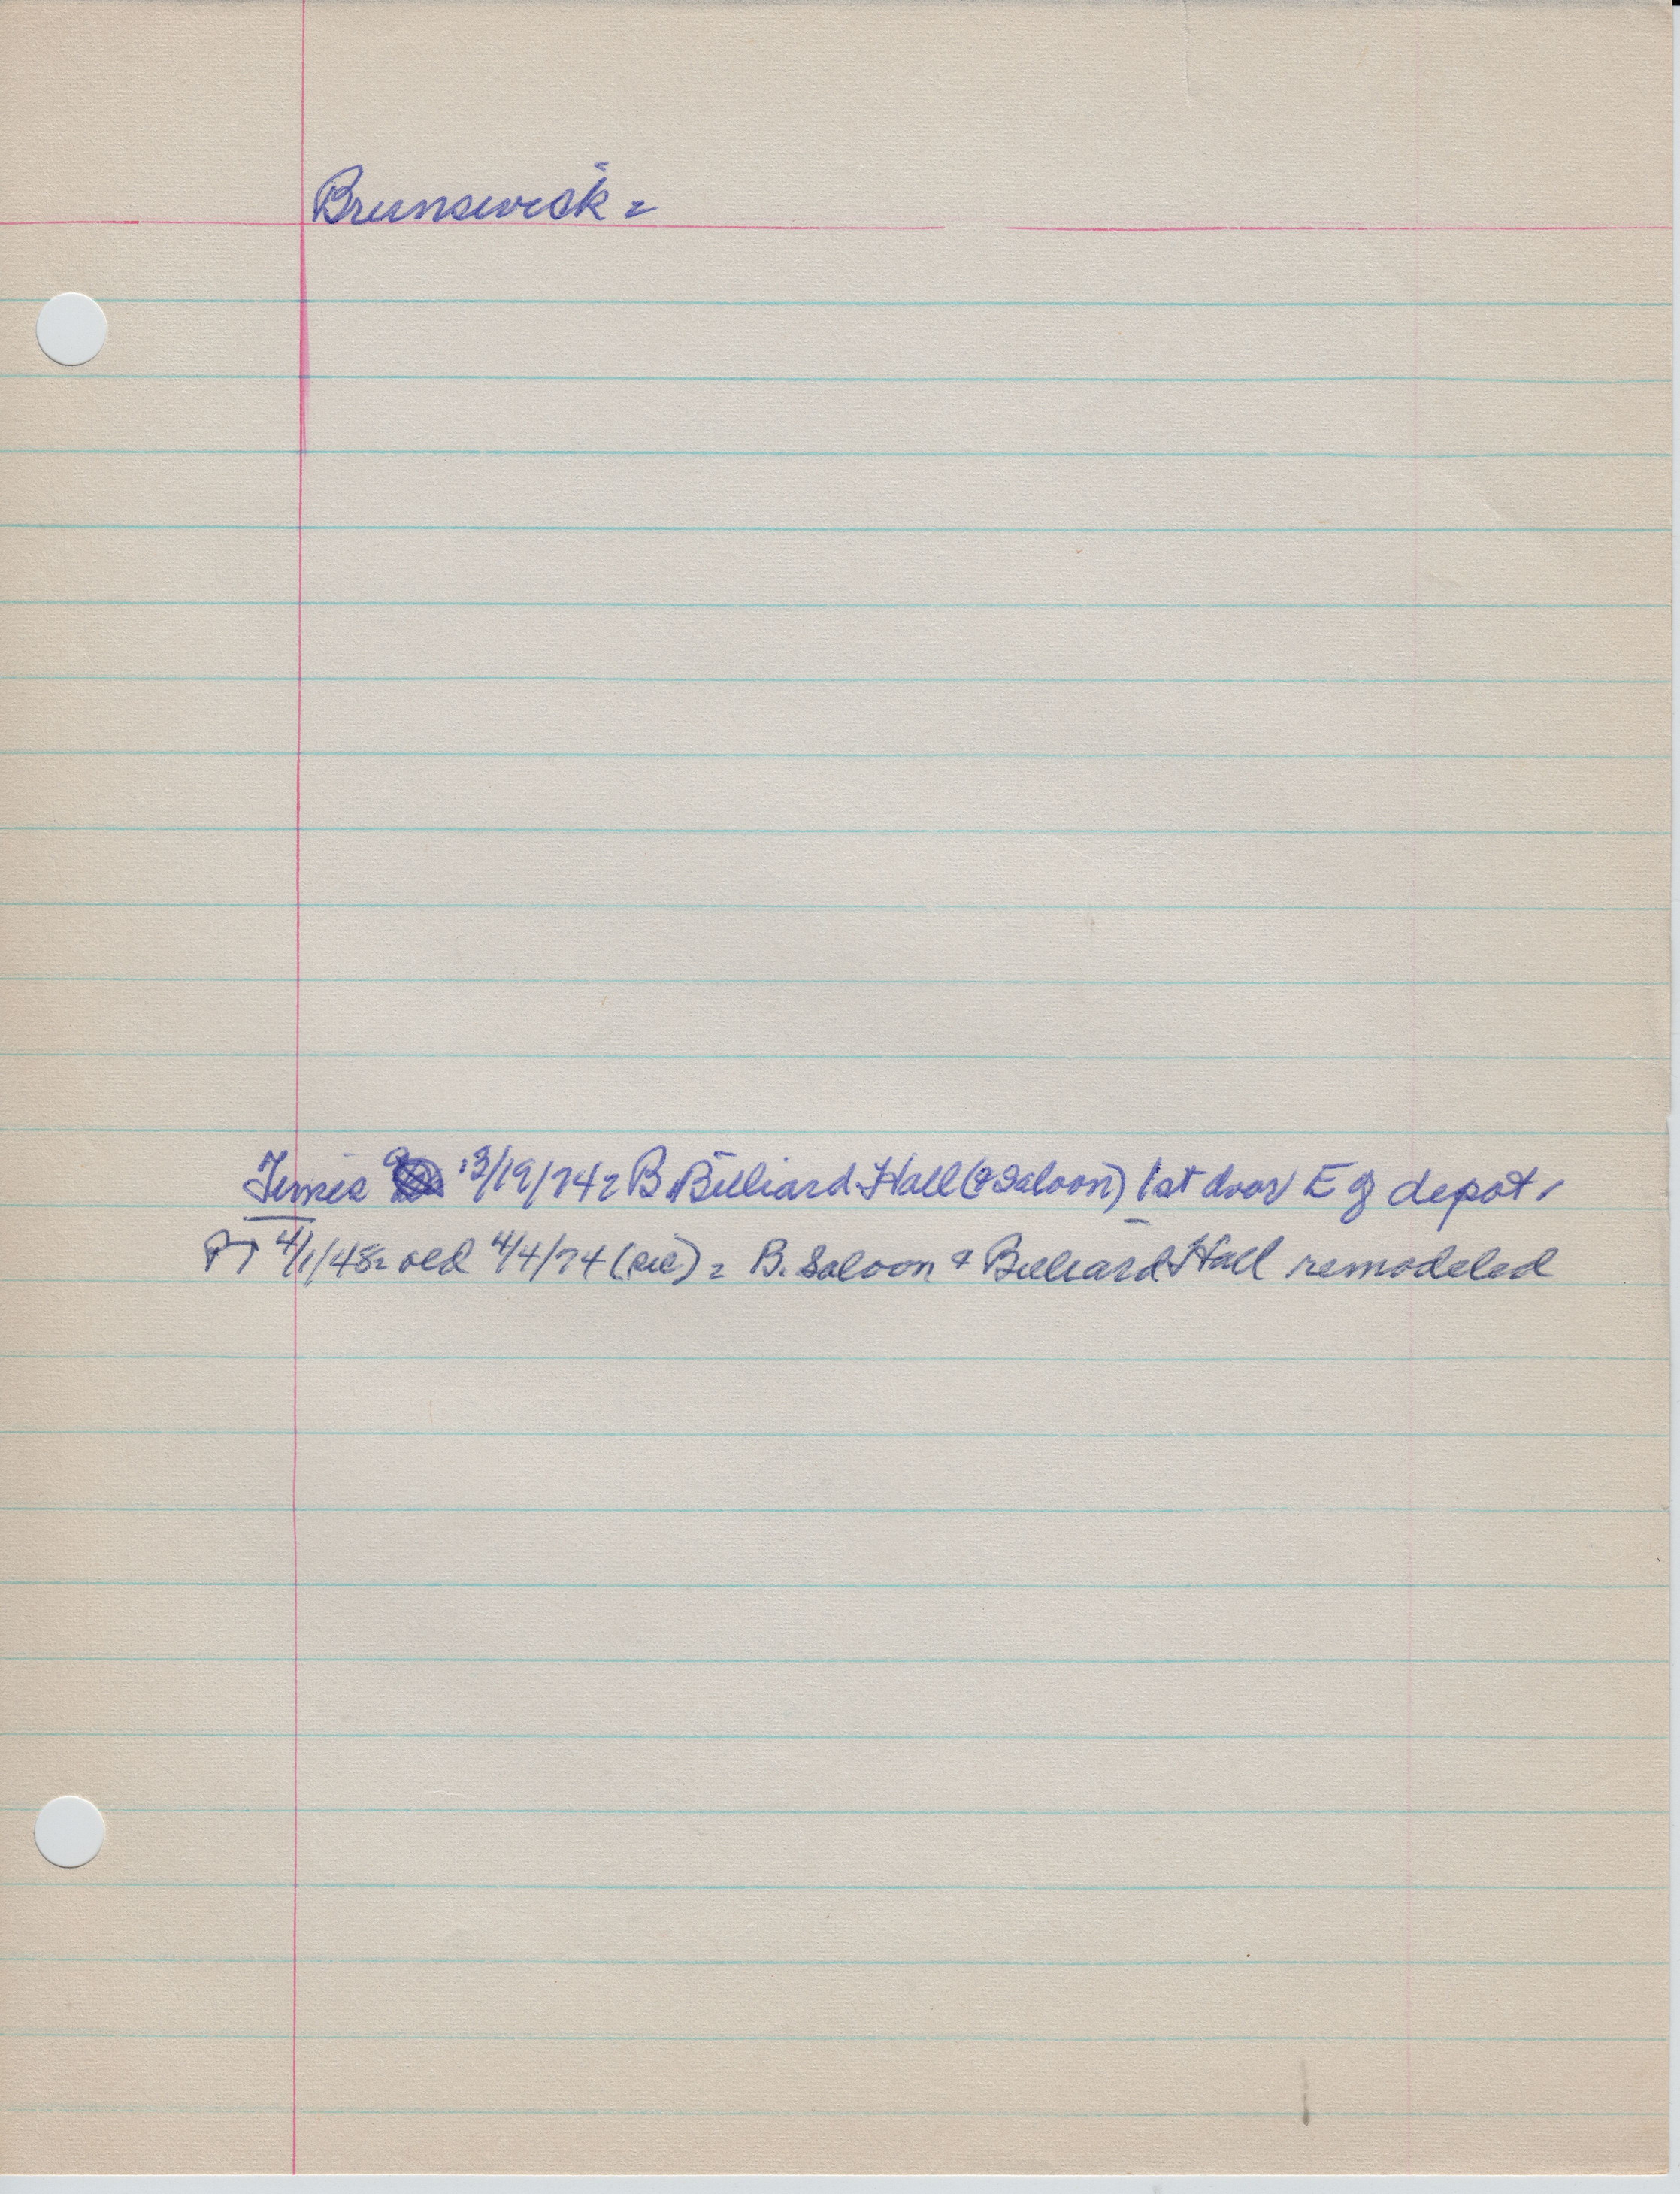 Brunswick =
Times 3/19/74 = B Billiard Hall (& Saloon) 1st door E of depot.
PT 4/1/48 = old 4/4/74 (sic) = B. Saloon & Billiard Hall remodeled